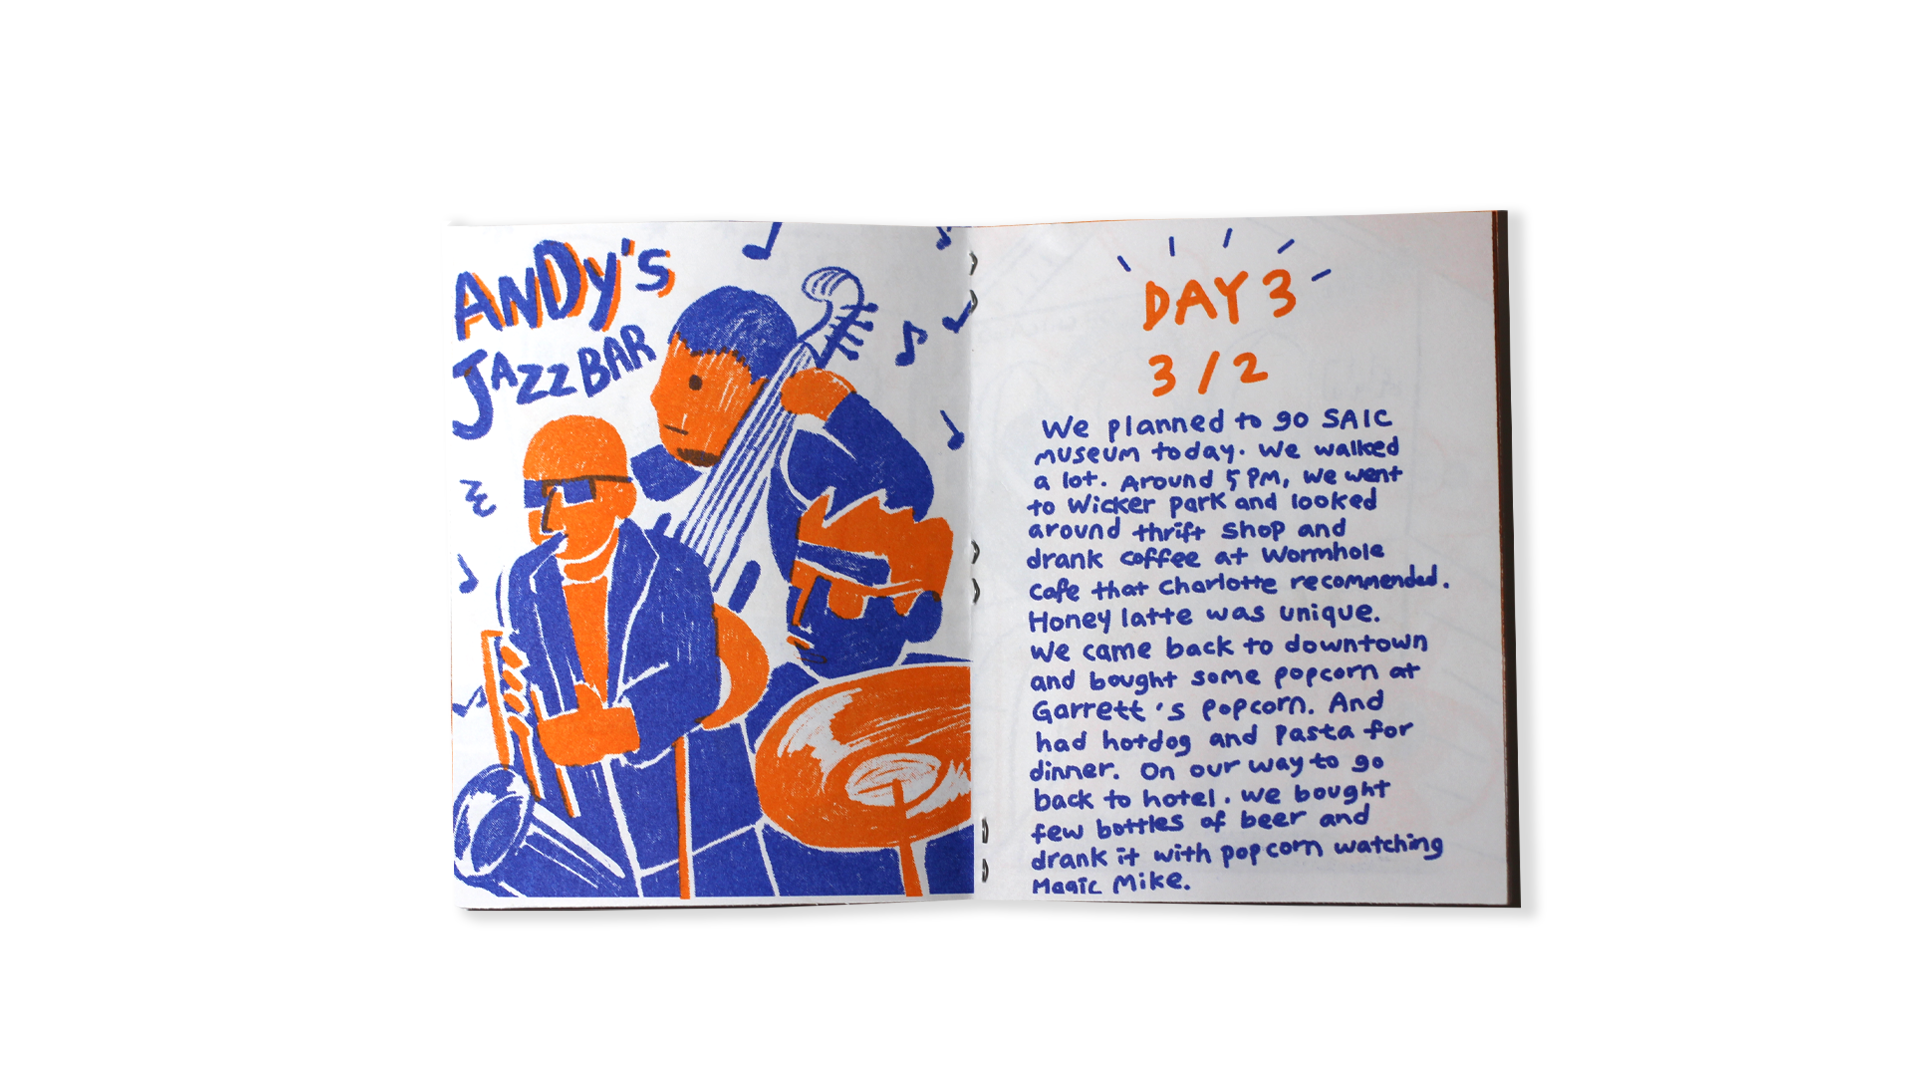 ANDy's
JAZZ BAR
DAY 3
3/2
We planned to go SAIC
museum today. We walked
a lot. Around 5 PM, we went
to Wicker park and looked
around thrift shop and
drank coffee at Wormhole
cafe that Charlotte recommended.
Honey latte was unique.
We came back to downtown
and bought some popcorn at
Garrett's popcorn. And
had hotdog and pasta for
dinner. On our way to go
back to hotel. we bought
few bottles of beer and
drank it with popcorn watching
Magic Mike.